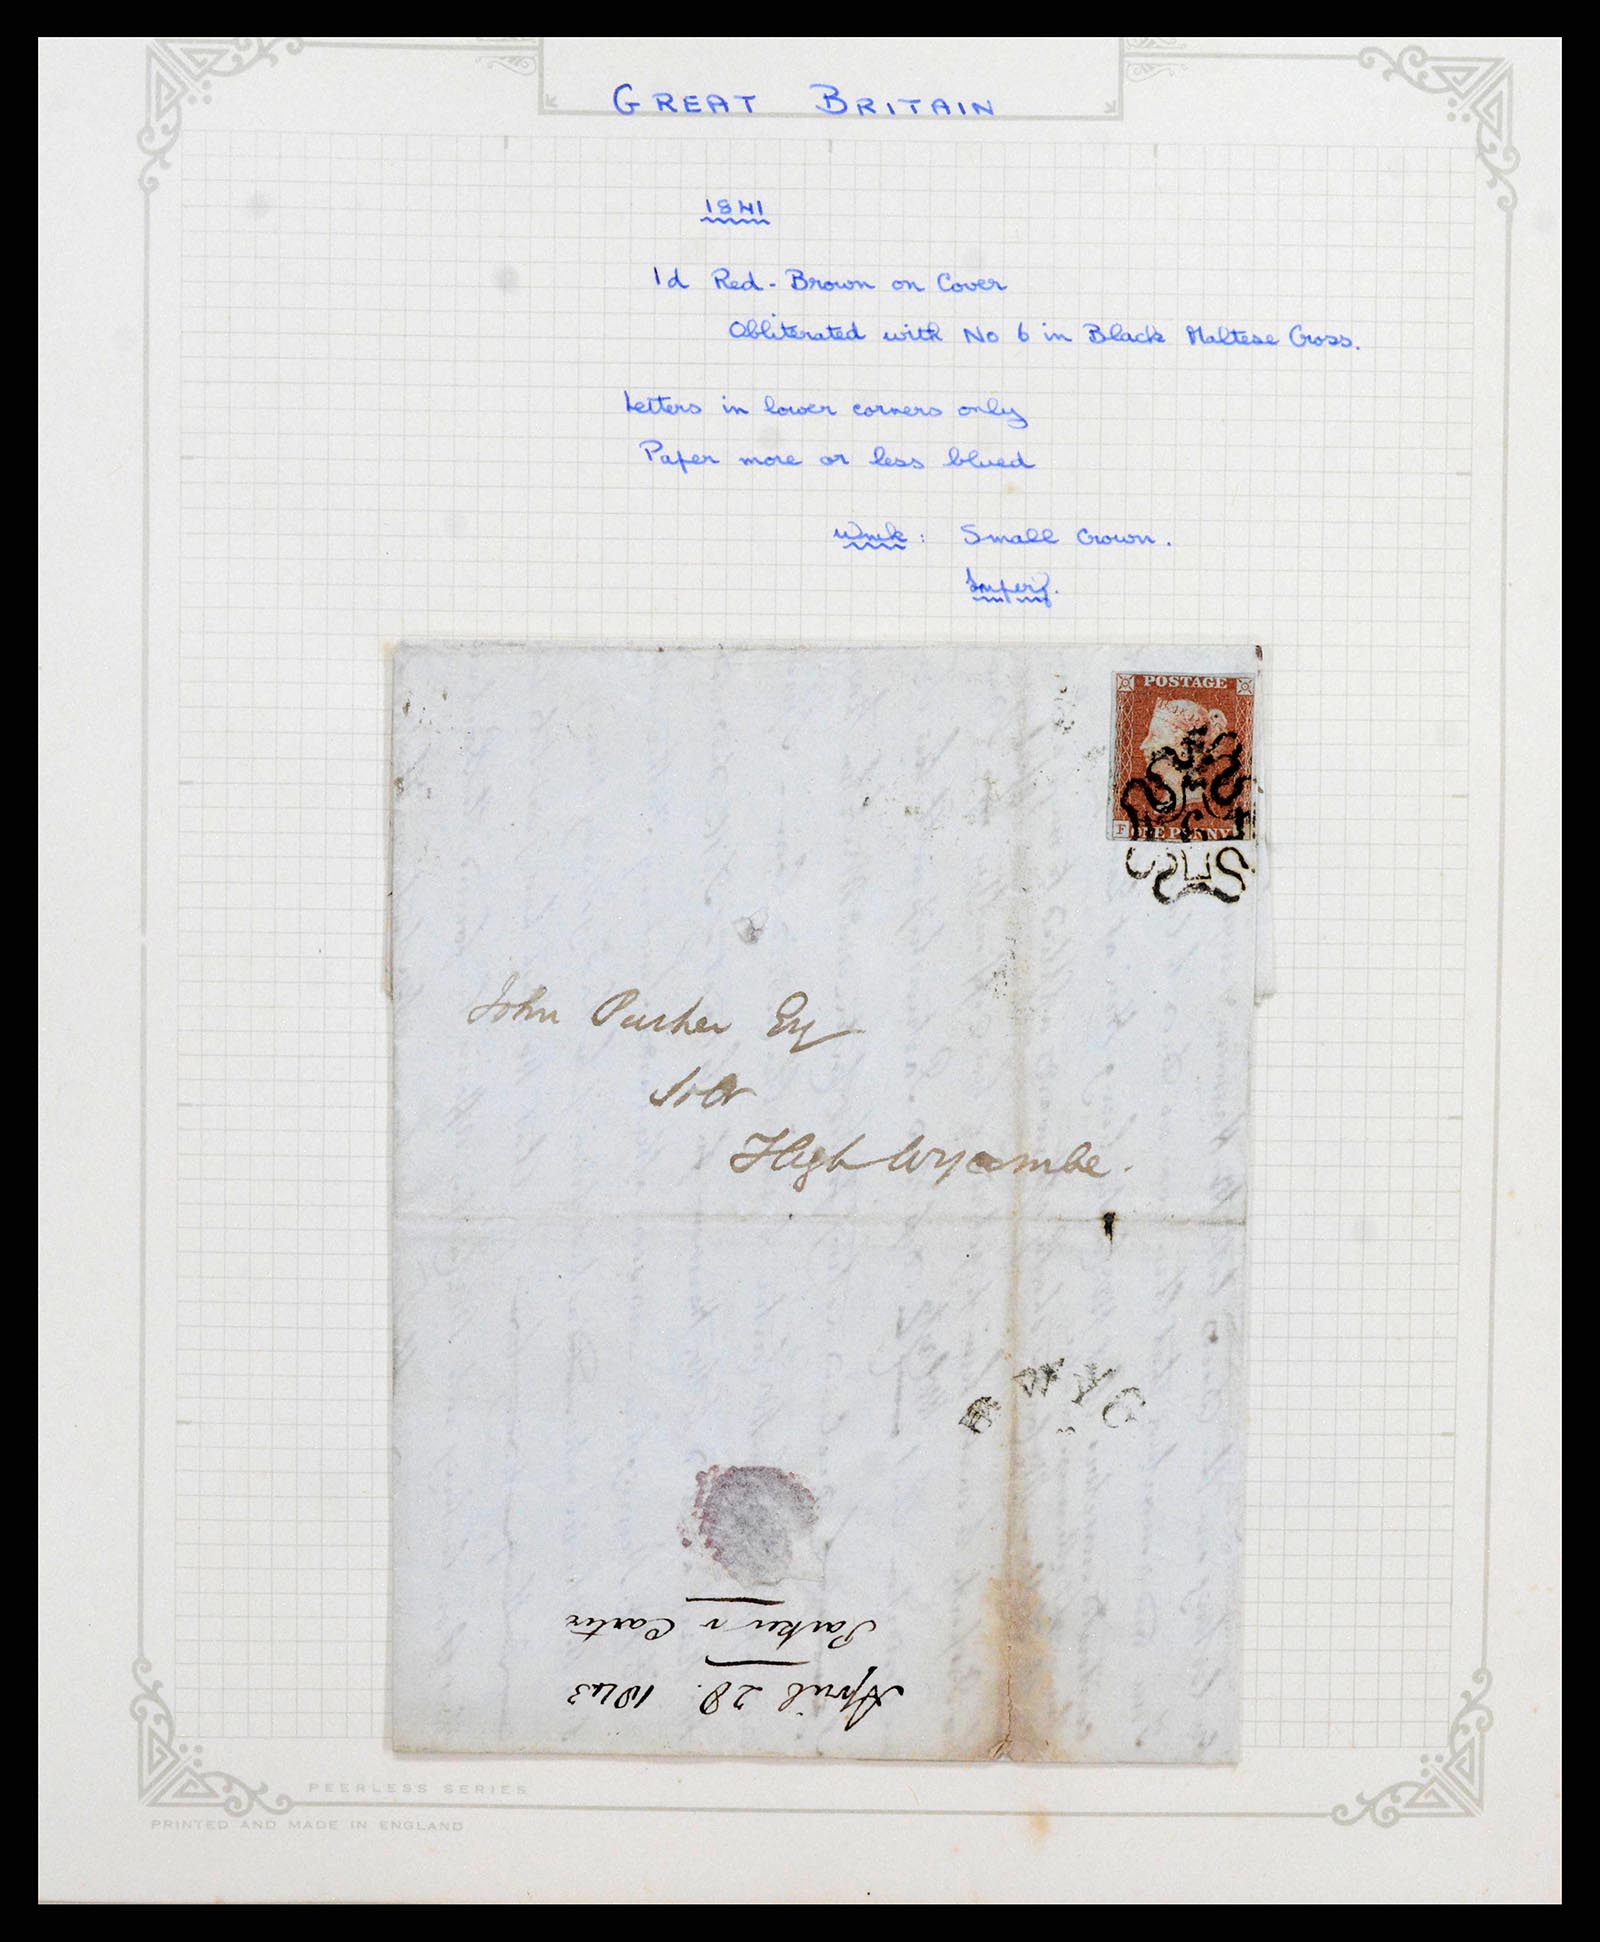 GREAT BRITAIN
1841
1d Red-Brown on Cover
Obliterated with No 6 in Black Maltese Cross.
Letters in lower corners only
Paper more or less blued
Wmk: Small Crown.
Imperf.
POSTAGE
F ONE PENNY
John Parker Esq
Solr
High Wycombe.
Parker v Carter
April 28. 1843
PEERLESS SERIES
PRINTED AND MADE IN ENGLAND